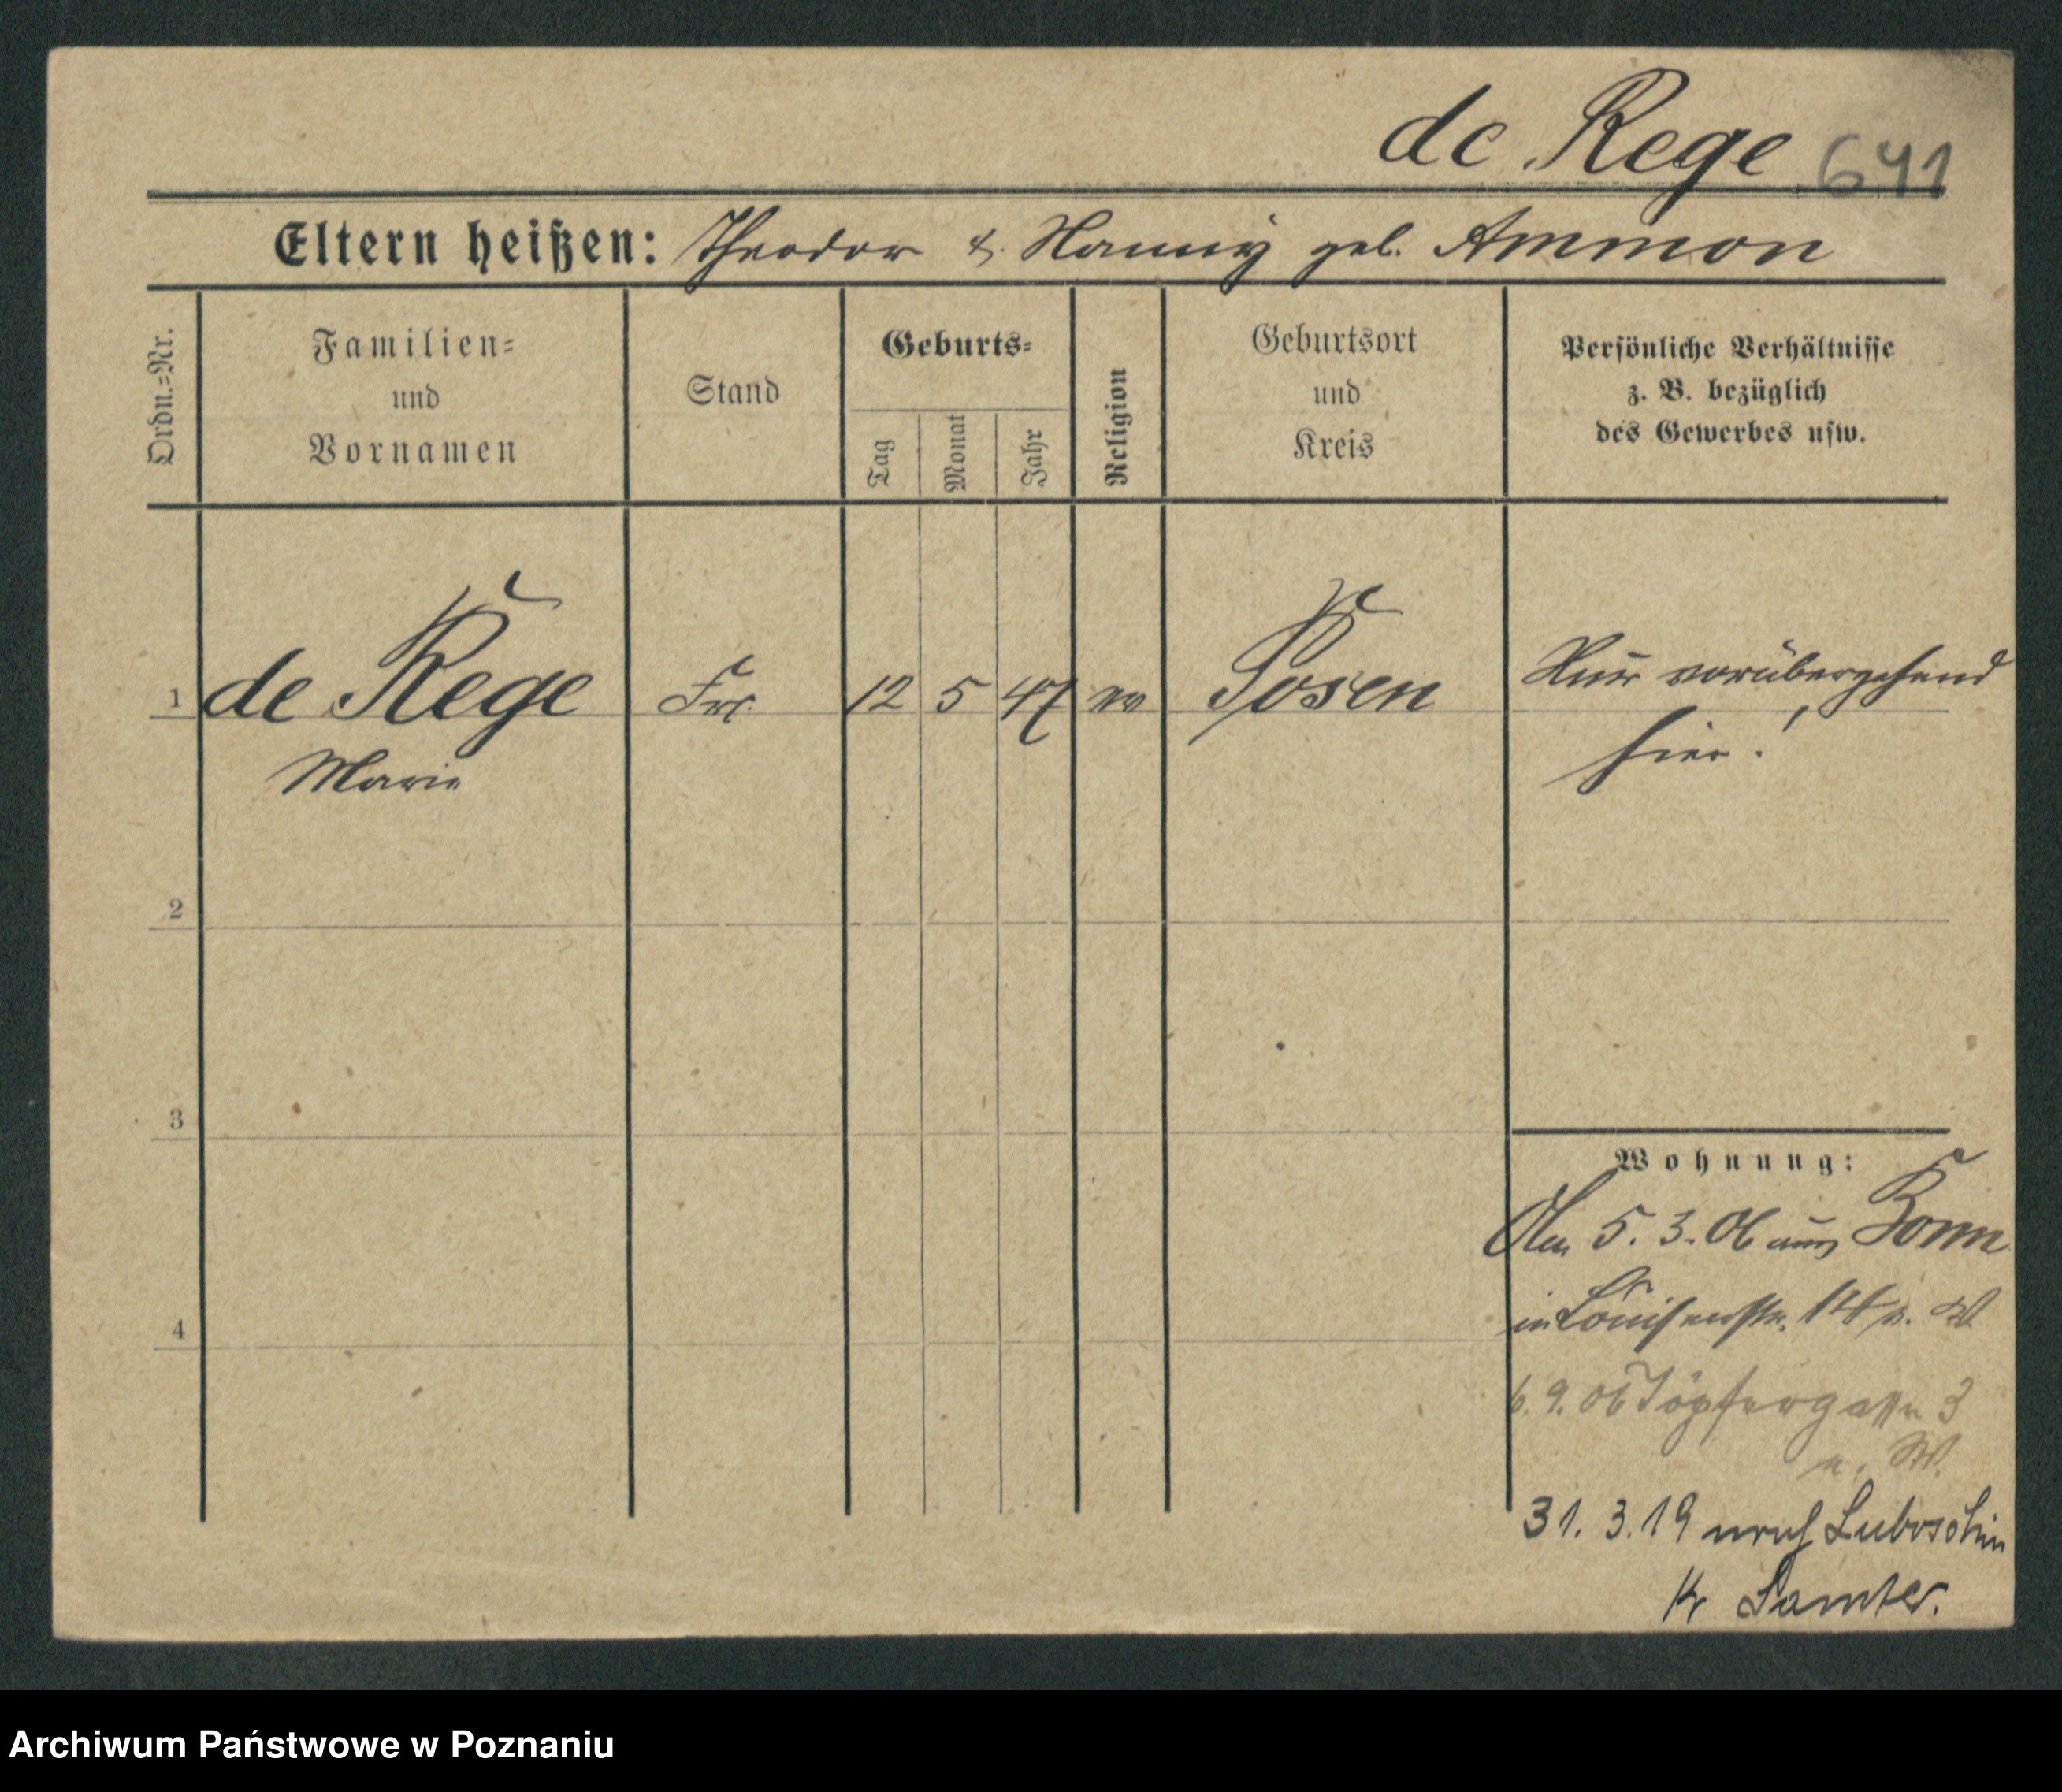 de Rege 641
Eltern heißen: Theodor & Nanny geb. Ammon
Ordn.=Nr.
Familien=
und
Vornamen
Stand
Geburts=
Tag
Monat
Jahr
Religion
Geburtsort
und
Kreis
Persönliche Verhältnisse
z. B. bezüglich
des Gewerbes usw.
1 de Rege Frl. 12 5 47 ev Posen Nur vorübergehend
Marie hier!
2
3
Wohnung:
5. 3. 06 aus Bonn
4
in Louisenstr. 14 b. W
6. 9. 06 Töpfergasse 3
b. W.
31. 3. 19 nach Luboschin
Kr Samter.
Archiwum Państwowe w Poznaniu